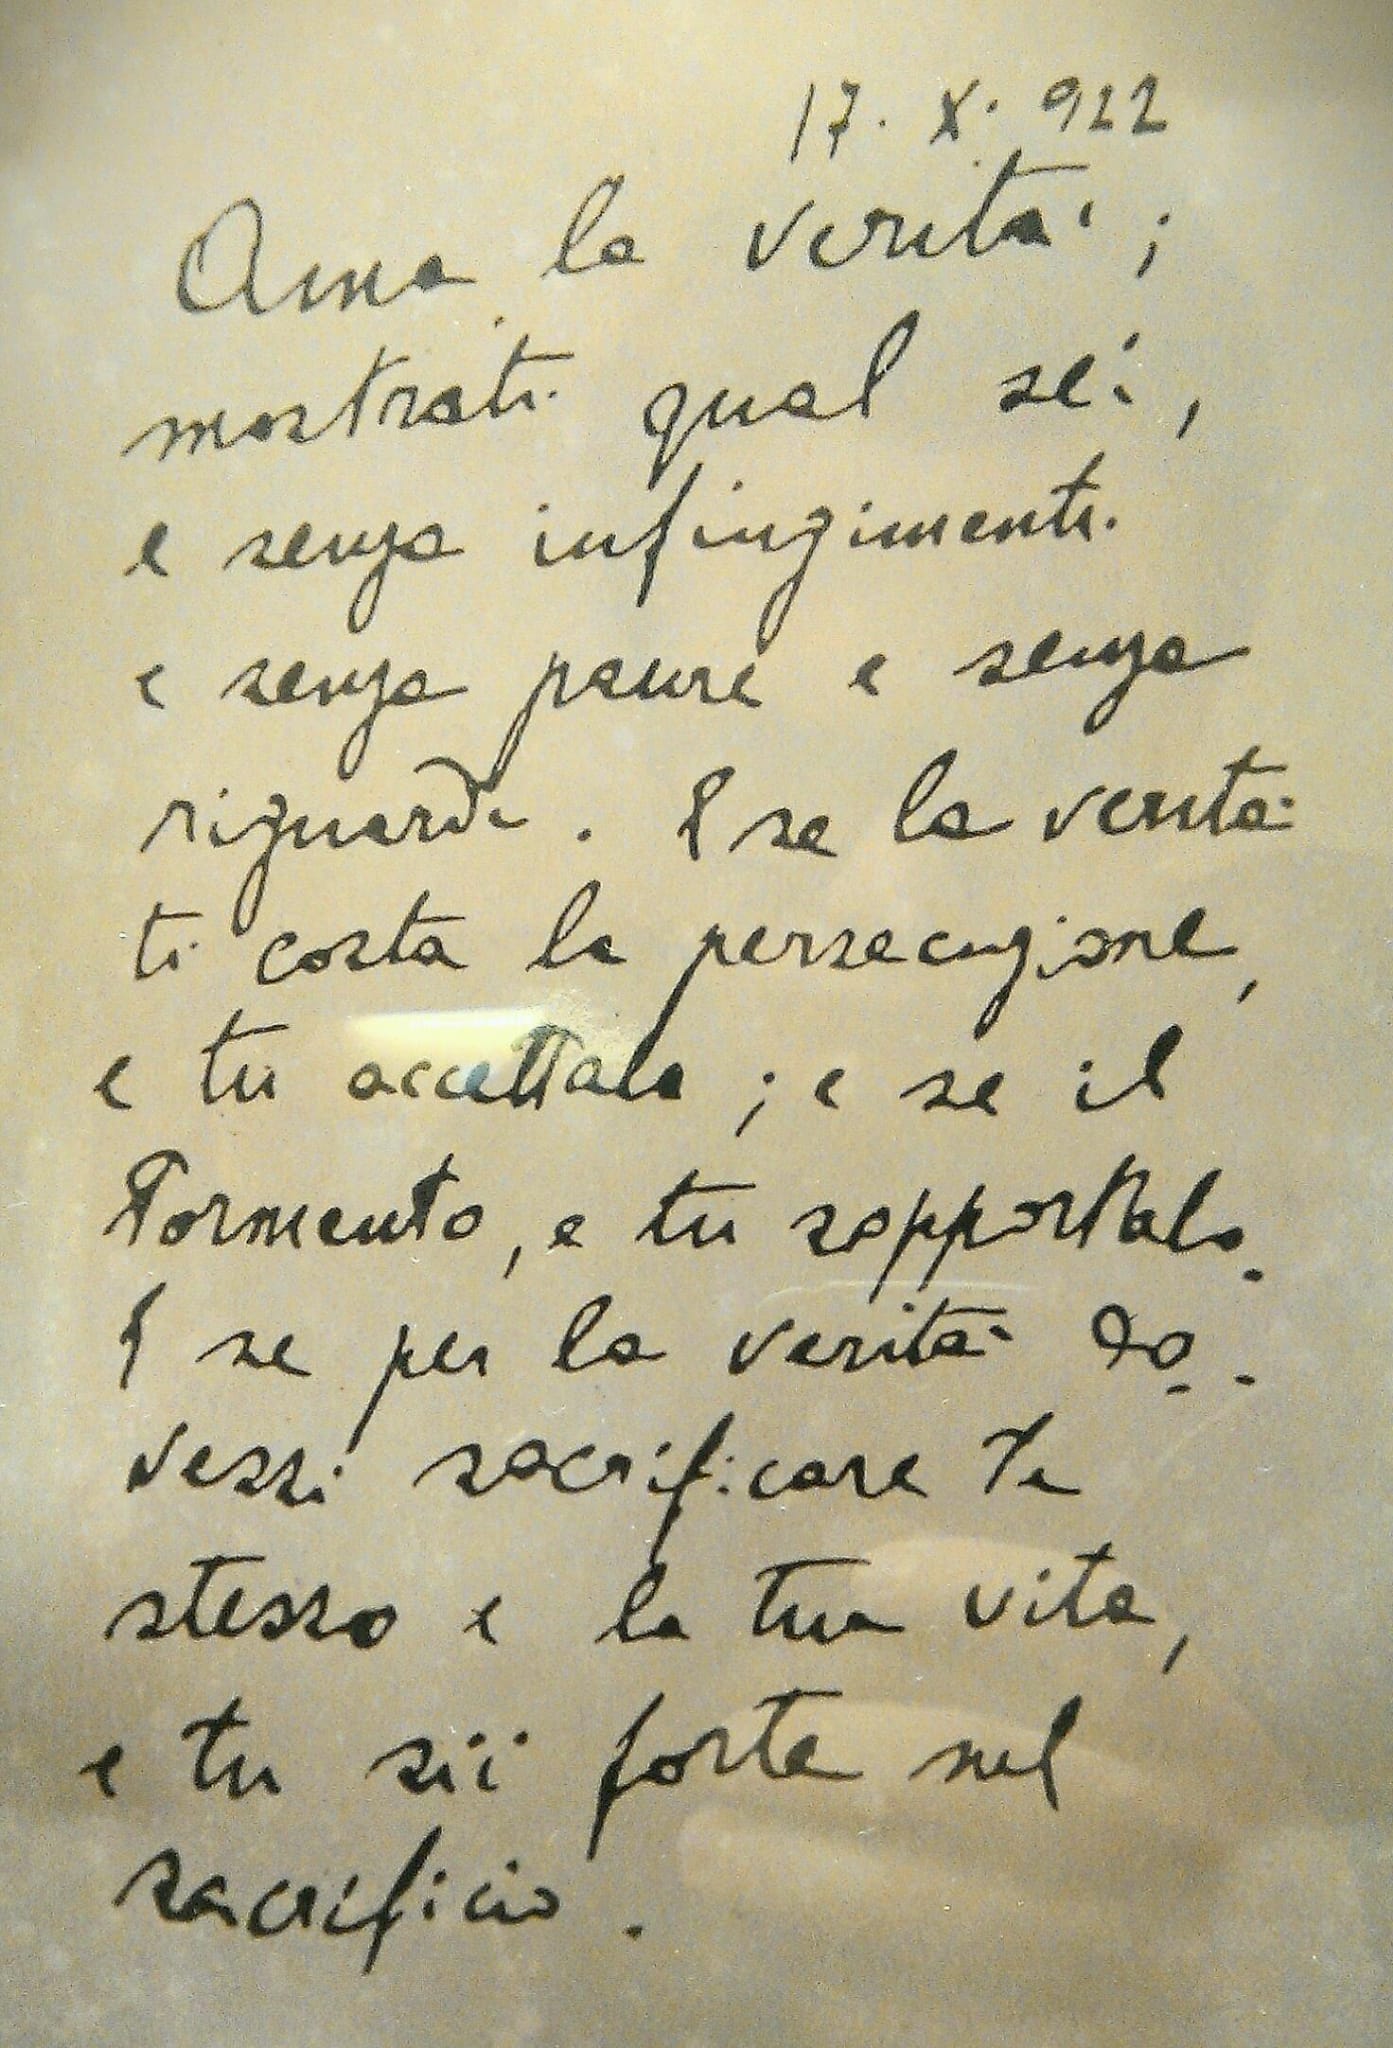 17. X. 922
Ama la verità;
mostrati qual sei,
e senza infingimenti
e senza paure e senza
riguardi. E se la verità
ti costa la persecuzione,
e tu accettala; e se il
tormento, e tu sopportalo.
E se per la verità do-
vessi sacrificare te
stesso e la tua vita,
e tu sii forte nel
sacrificio.